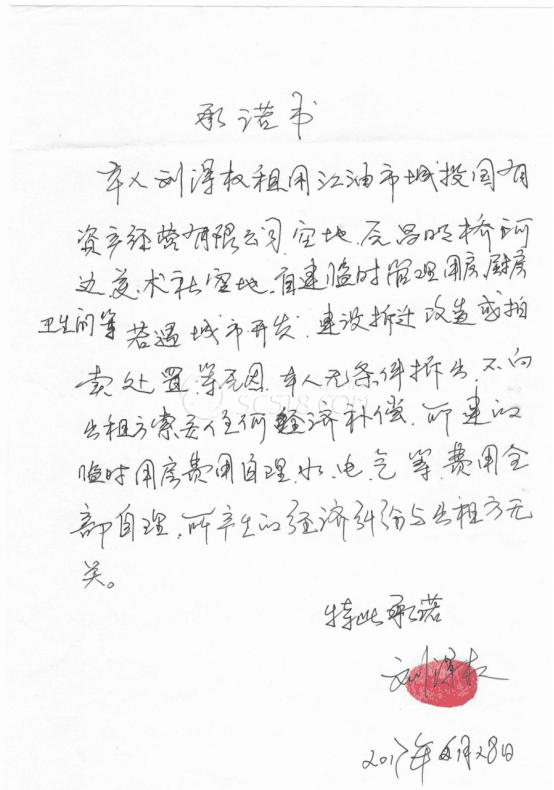 承诺书
本人刘泽权租用江油市城投国有
资产经营有限公司,空地、原昌明桥河
边美术社空地,自建临时管理用房,厨房
卫生间等 若遇城市开发,建设拆迁改造或拍
卖处置等原因,本人无条件拆出,不向
出租方索要任何经济补偿,所建的
临时用房费用自理,水、电、气等费用全
部自理,所产生的经济纠纷与出租方无
关。
特此承诺
刘泽权
2017年 月28日
SC518.COM